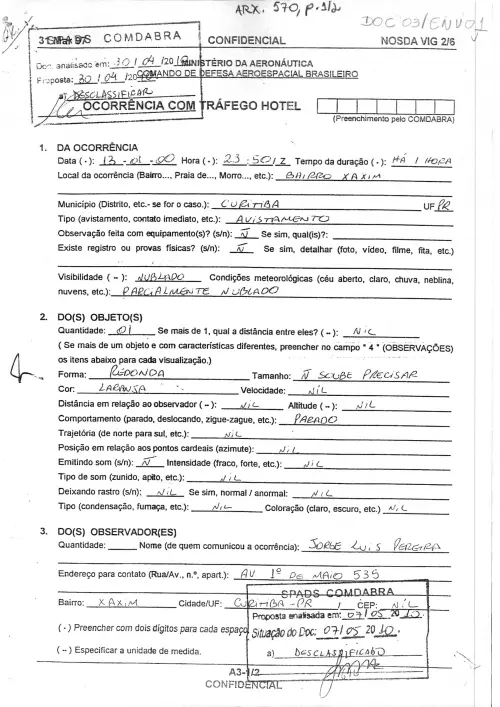 ARX. 570, p.1/2
DOC 03/ENV01
COMDABRA
CONFIDENCIAL
NOSDA VIG 2/6
Doc. analisado em: 30 / 04 /20
MINISTÉRIO DA AERONÁUTICA
Proposta: 30 / 04 /20
COMANDO DE DEFESA AEROESPACIAL BRASILEIRO
a) DESCLASSIFICAR
OCORRÊNCIA COM TRÁFEGO HOTEL
(Preenchimento pelo COMDABRA)
1. DA OCORRÊNCIA
Data ( - ): 13 - 01 - 00 Hora ( - ): 23 : 50 / Z Tempo da duração ( - ): HÁ 1 HORA
Local da ocorrência (Bairro..., Praia de..., Morro..., etc.): BAIRRO XAXIM
Município (Distrito, etc.- se for o caso.): CURITIBA UF PR
Tipo (avistamento, contato imediato, etc.): AVISTAMENTO
Observação feita com equipamento(s)? (s/n): N Se sim, qual(is)?:
Existe registro ou provas físicas? (s/n): N Se sim, detalhar (foto, vídeo, filme, fita, etc.)
Visibilidade ( -- ): NUBLADO Condições meteorológicas (céu aberto, claro, chuva, neblina,
nuvens, etc.): PARCIALMENTE NUBLADO
2. DO(S) OBJETO(S)
Quantidade: 01 Se mais de 1, qual a distância entre eles? ( -- ): NIL
( Se mais de um objeto e com características diferentes, preencher no campo " 4 " (OBSERVAÇÕES)
os itens abaixo para cada visualização.)
Forma: REDONDA Tamanho: Ñ SOUBE PRECISAR
Cor: LARANJA Velocidade: NIL
Distância em relação ao observador ( -- ): NIL Altitude ( -- ): NIL
Comportamento (parado, deslocando, zigue-zague, etc.): PARADO
Trajetória (de norte para sul, etc.): NIL
Posição em relação aos pontos cardeais (azimute): NIL
Emitindo som (s/n): N Intensidade (fraco, forte, etc.): NIL
Tipo de som (zunido, apito, etc.): NIL
Deixando rastro (s/n): NIL Se sim, normal / anormal: NIL
Tipo (condensação, fumaça, etc.): NIL Coloração (claro, escuro, etc.) NIL
3. DO(S) OBSERVADOR(ES)
Quantidade: Nome (de quem comunicou a ocorrência): JORGE LUIS PEREIRA
Endereço para contato (Rua/Av., n.º, apart.): AV 1º DE MAIO 535
SPADS COMDABRA
Bairro: XAXIM Cidade/UF: CURITIBA - PR / CEP: NIL
Proposta analisada em: 07 / 05 20 10.
( - ) Preencher com dois dígitos para cada espaço
Situação do Doc: 07 / 05 20 10.
( -- ) Especificar a unidade de medida.
a) DESCLASSIFICADO
A3-1/2
CONFIDENCIAL